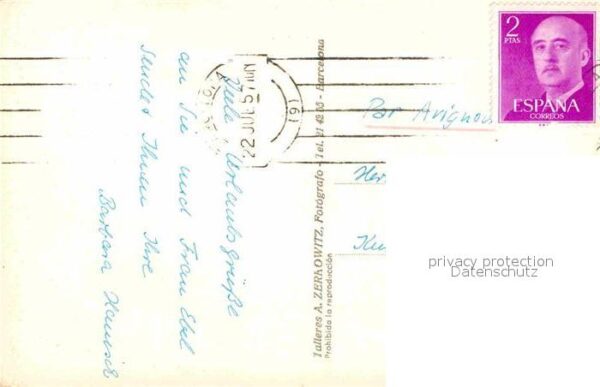 Viele Urlaubsgrüße
an Sie und Frau Ebel
sendet Ihnen Ihre
Barbara
22 JUL 57
(6)
Talleres A. ZERKOWITZ, Fotógrafo - Tel. 21 49 05 - Barcelona
Prohibida la reproducción
2
PTAS
ESPAÑA
CORREOS
Par Avignon
Her
privacy protection
Datenschutz